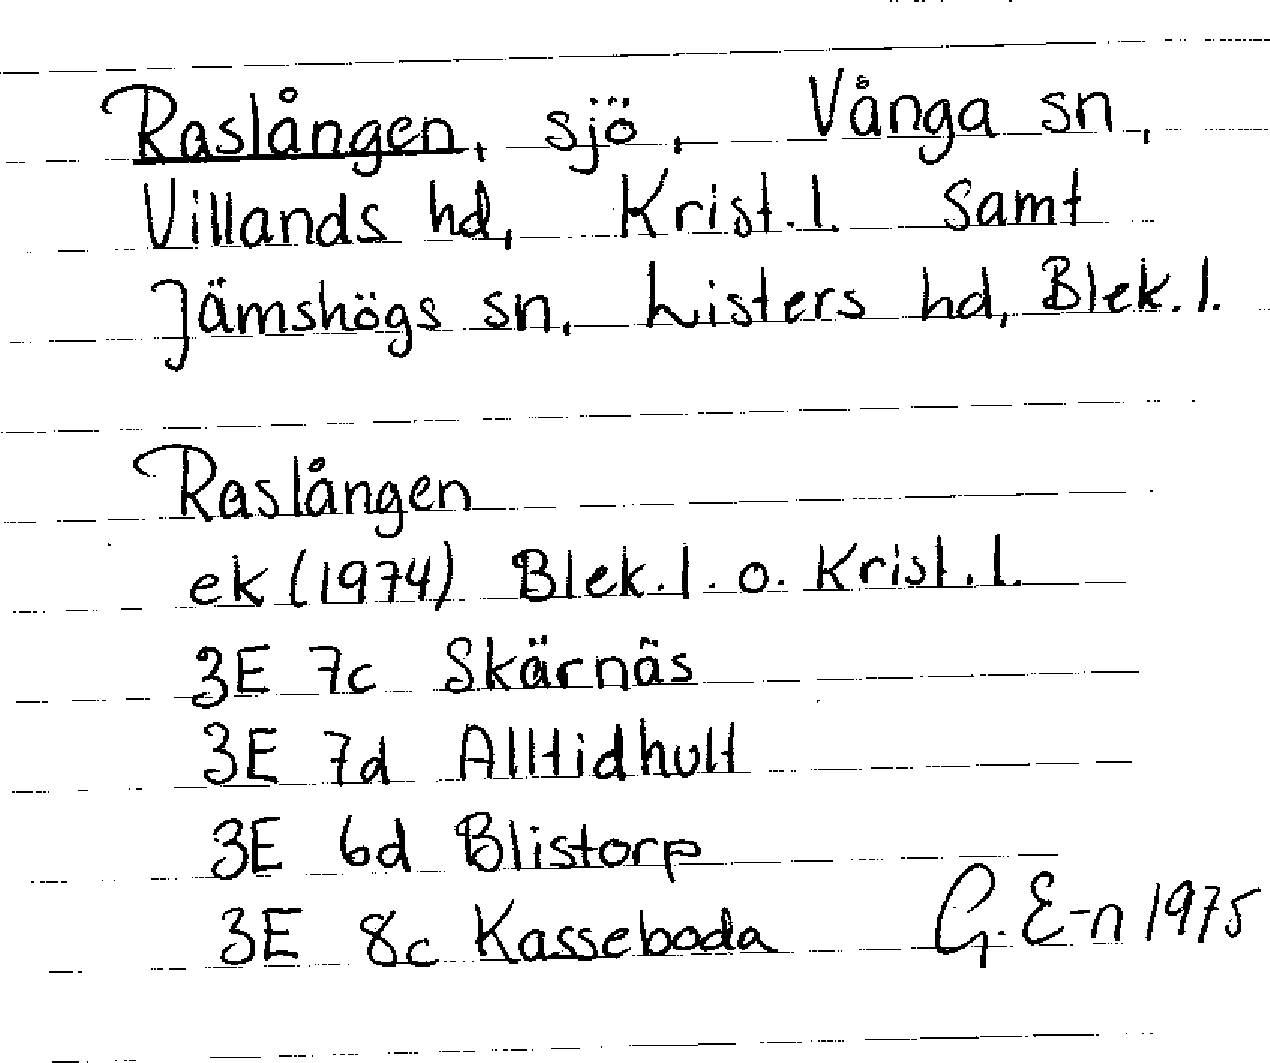 Raslången, sjö, Vånga sn,
Villands hd, Krist.l. samt
Jämshögs sn, Listers hd, Blek.l.
Raslången
ek (1974) Blek.l. o. Krist.l.
3E 7c Skärnäs
3E 7d Alltidhult
3E 6d Blistorp
3E 8c Kasseboda G. E-n 1975